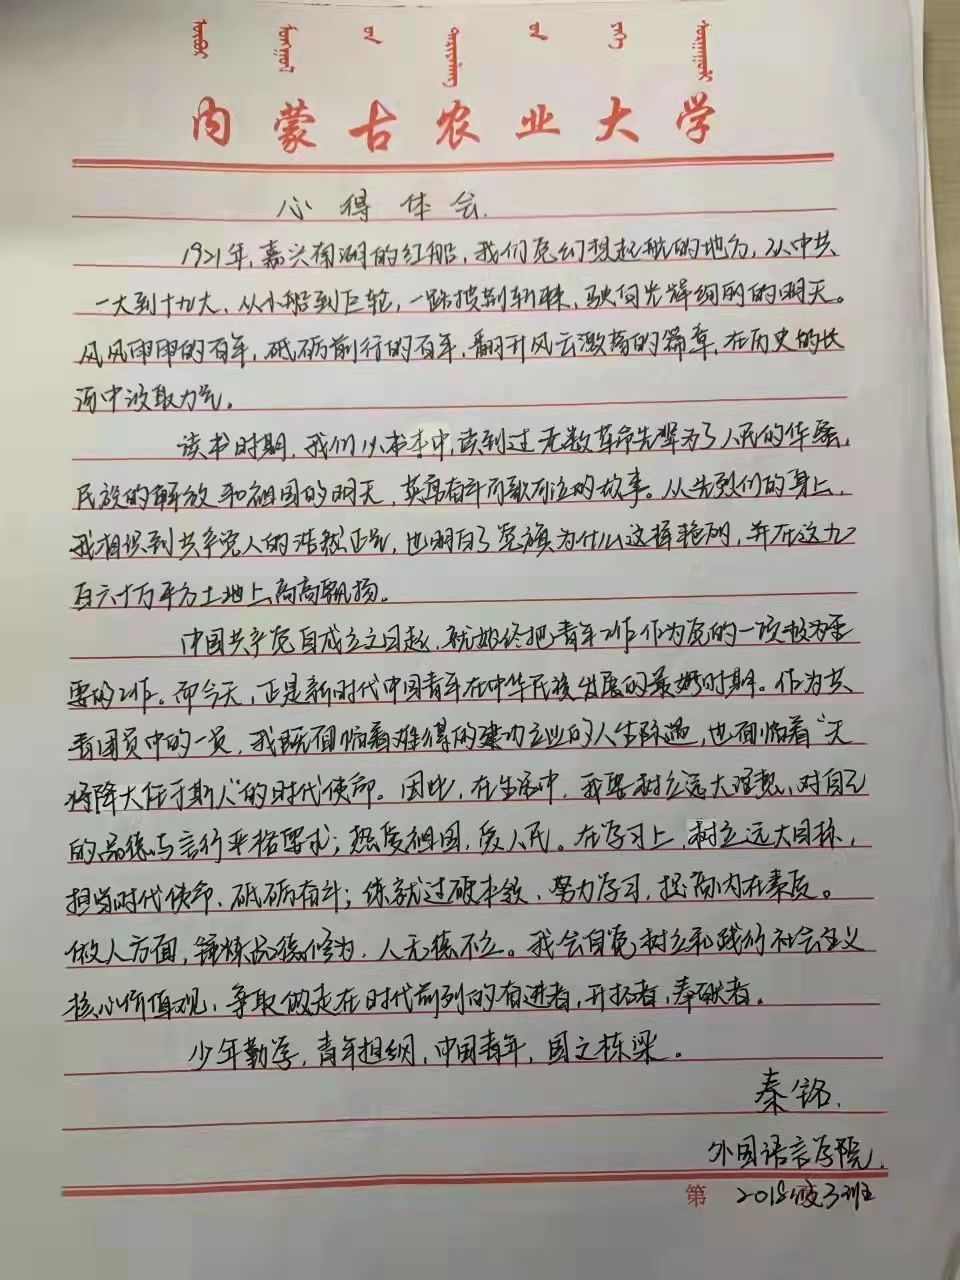 内蒙古农业大学
心得体会
1921年,嘉兴南湖的红船,我们党幻想起航的地方,从中共
一大到十九大,从小船到巨轮,一路披荆斩棘,驶向光辉绚丽的明天。
风风雨雨的百年,砥砺前行的百年,翻开风云激荡的篇章,在历史的长
河中汲取力气。
读书时期,我们从书本中,读到过无数革命先辈为了人民的
民族的解放和祖国的明天,英勇奋斗可歌可泣的故事。从先烈们的身上,
我相识到共产党人的浩然正气,也明白了党旗为什么这样艳丽,并在这九
百六十万平方土地上高高飘扬。
中国共产党自成立之日起,就始终把青年工作作为党的一项极为重
要的工作。而今天,正是新时代中国青年在中华民族发展的最好时期。作为共
青团员中的一员,我既面临着难得的建功立业的人生际遇,也面临着“天
将降大任于斯人”的时代使命。因此,在生活中,我要树立远大理想、对自己
的品德与言行严格要求;热爱祖国,爱人民。在学习上,树立远大目标,
担当时代使命、砥砺奋斗;练就过硬本领、努力学习,提高内在素质。
做人方面,锤炼品德修为,人无德不立。我会自觉树立和践行社会主义
核心价值观,争取做走在时代前列的奋进者,开拓者,奉献者。
少年勤学,青年担纲,中国青年,国之栋梁。
秦铭.
外国语言学院.
第 2018级3班